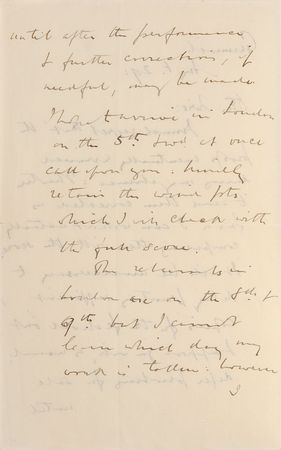 until after the performance
& further corrections, if
needful, may be made
I hope to arrive in London
on the 5th and at once
call upon you. Kindly
retain the wind pts
which I will check with
the full score.
The rehearsals in
London are on the 8th &
9th but I cannot
learn which day my
work is taken: however
I